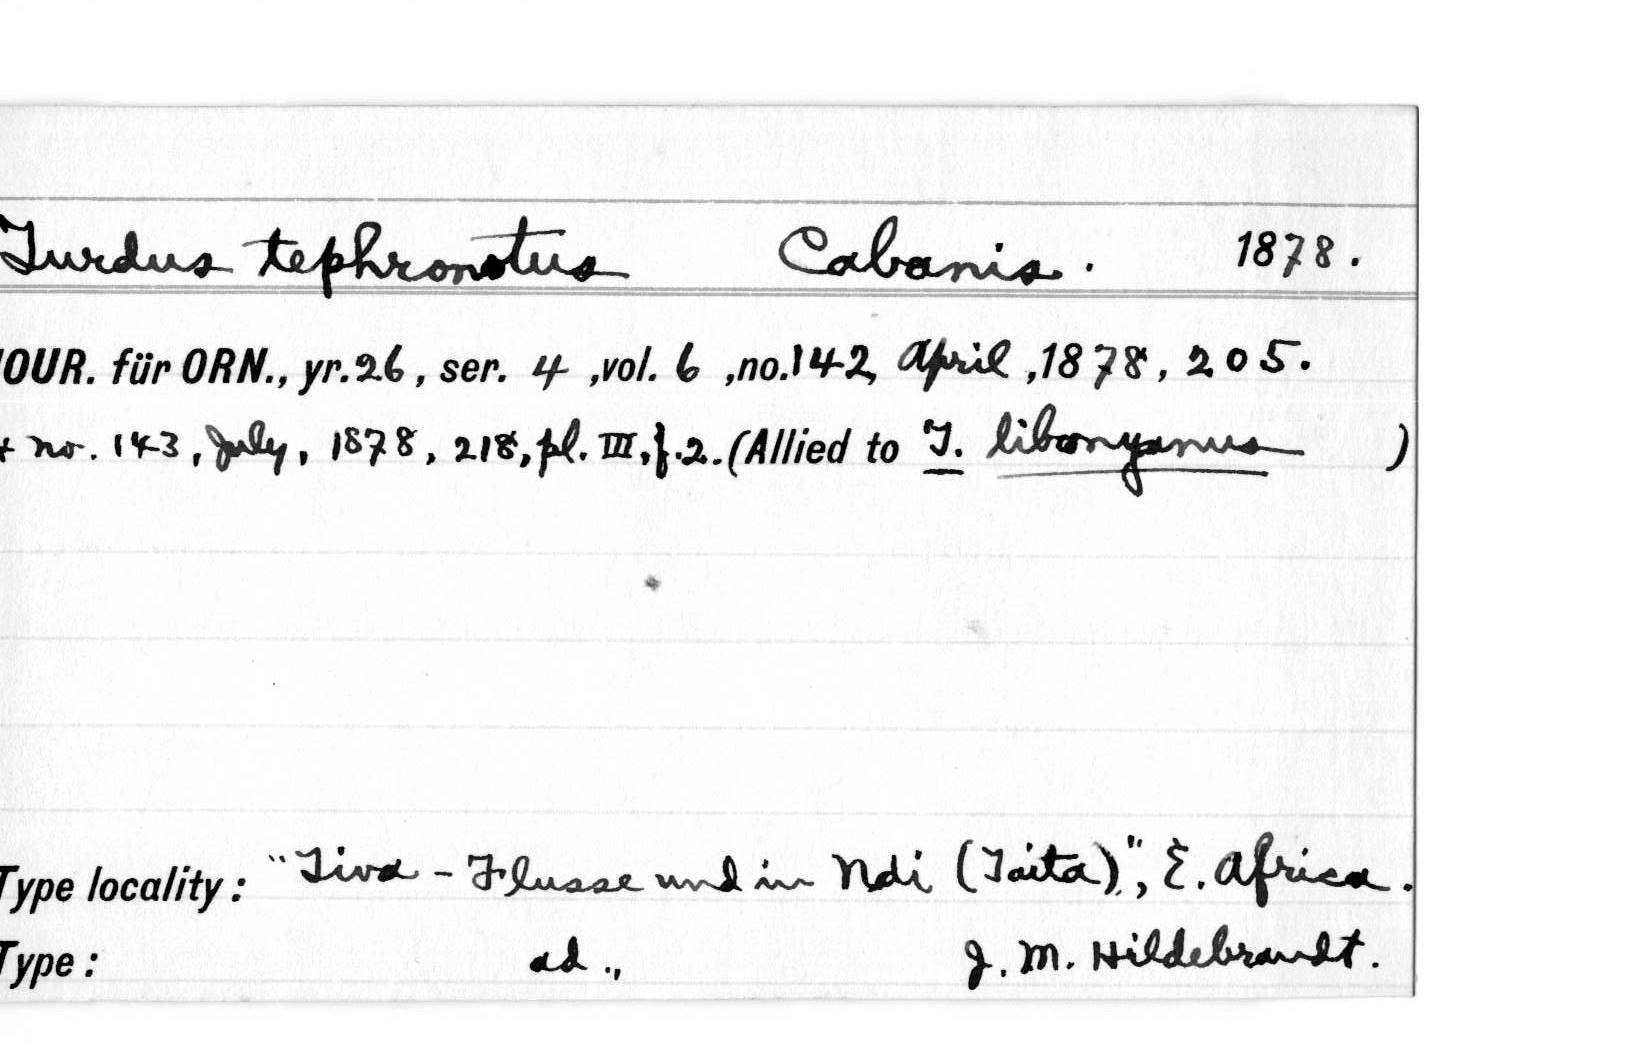 Turdus tephronotus Cabanis. 1878.
JOUR. für ORN., yr. 26, ser. 4, vol. 6, no. 142, April, 1878, 205.
+ no. 143, July, 1878, 218, pl. III, f. 2. (Allied to T. libonyanus )
Type locality: "Tiva - Flusse und in Ndi (Taita)", E. Africa.
Type: ad., J. M. Hildebrandt.